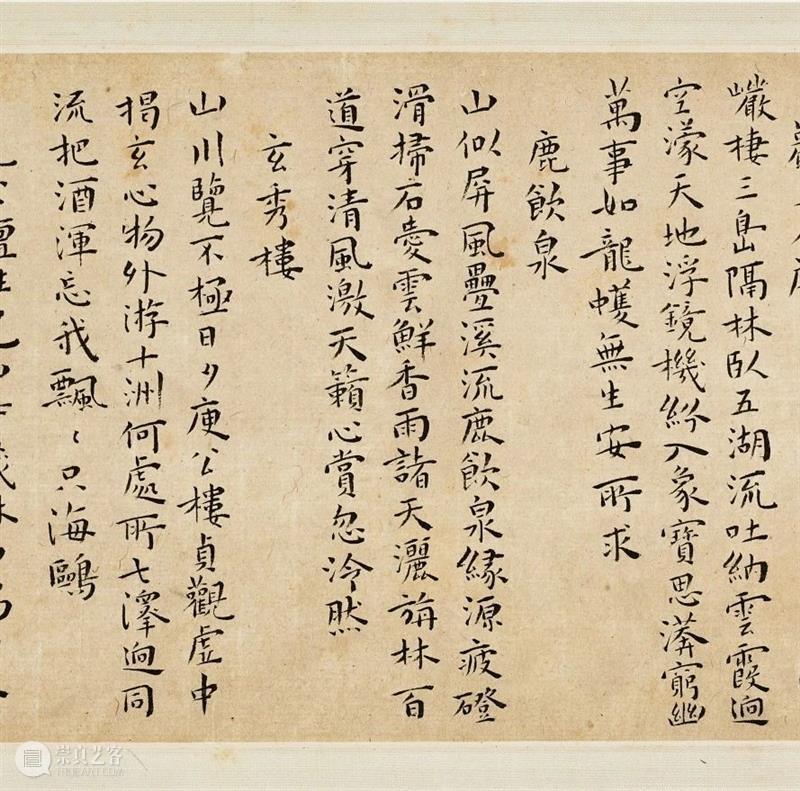 巖棲三島隔林臥五湖流吐納雲霞迥
空濛天地浮鏡機紛入象寶思漭窮幽
萬事如龍蠖無生安所求
鹿飲泉
山似屏風疊溪流鹿飲泉緣源疲磴
滑掃石愛雲鮮香雨諸天灑旃林百
道穿清風激天籟心賞忽泠然
玄秀樓
山川覽不極日夕庾公樓貞觀虛中
揭玄心物外游十洲何處所七澤迥同
流把酒渾忘我飄〻只海鷗
崇真艺客
TRUEART.COM